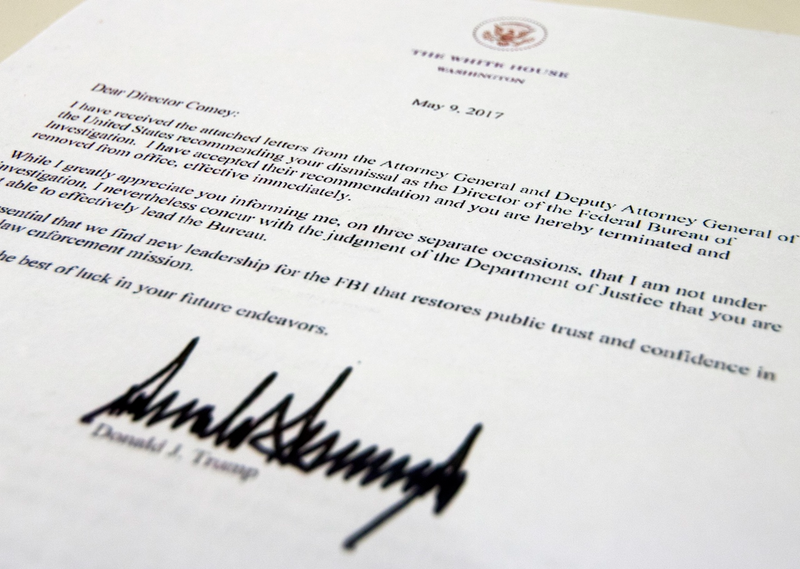 THE WHITE HOUSE
WASHINGTON
May 9, 2017
Dear Director Comey:
I have received the attached letters from the Attorney General and Deputy Attorney General of
the United States recommending your dismissal as the Director of the Federal Bureau of
Investigation. I have accepted their recommendation and you are hereby terminated and
removed from office, effective immediately.
While I greatly appreciate you informing me, on three separate occasions, that I am not under
investigation, I nevertheless concur with the judgment of the Department of Justice that you are
able to effectively lead the Bureau.
essential that we find new leadership for the FBI that restores public trust and confidence in
law enforcement mission.
the best of luck in your future endeavors.
Donald J. Trump